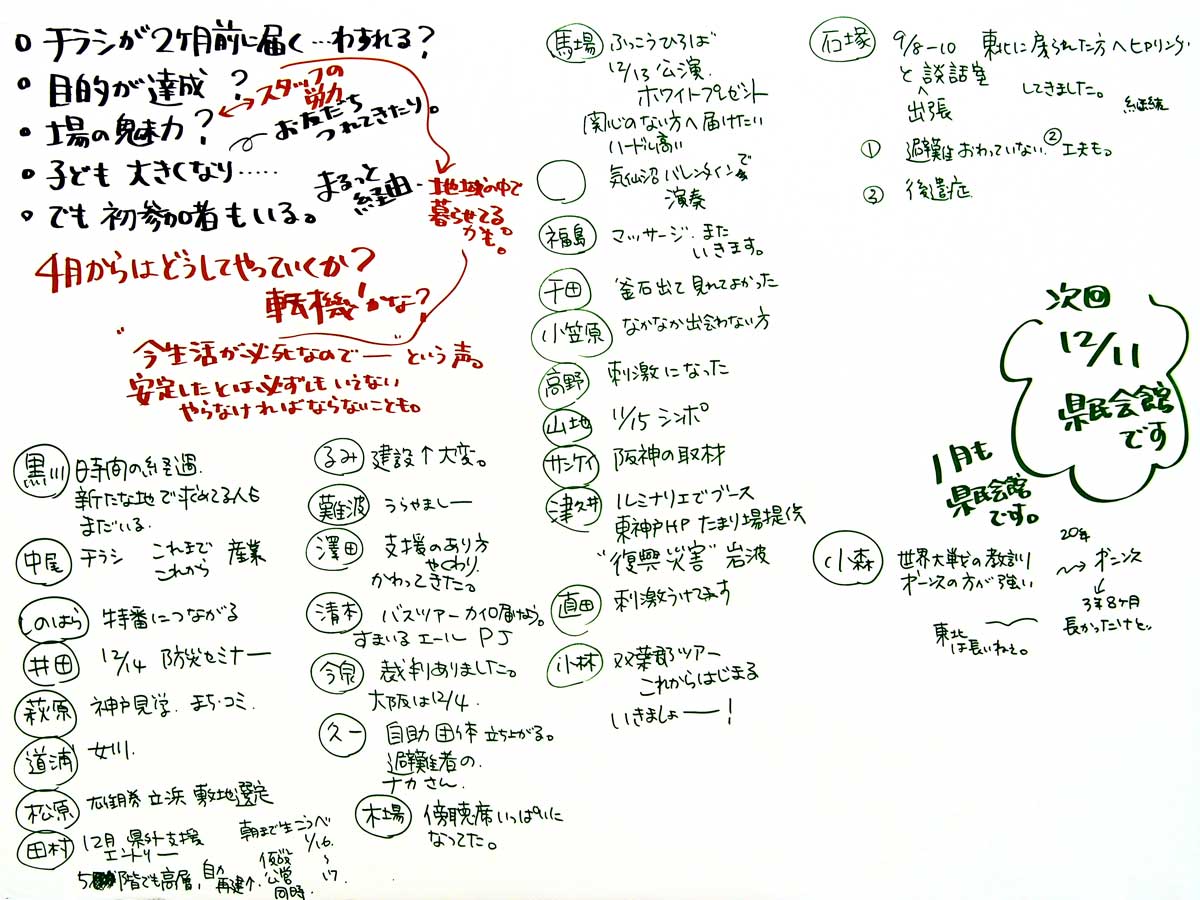 チラシが2ヶ月前に届く…わすれる?
目的が達成?
場の魅力?
スタッフの
労力
お友だち
つれてきたり。
子ども 大きくなり……
でも 初参加者もいる。
まるっと
経由
地域の中で
暮らせてる
かも。
4月からはどうしてやっていくか?
転機!かな?
"今生活が必死なので―" という声。
安定したとは必ずしもいえない
やらなければならないことも。
黒川 時間の経過.
新たな地で求めてる人も
まだいる.
中尾 チラシ これまで 産業
これから
しのはら 特番につながる
井田 12/14 防災セミナー
萩原 神戸見学. まち・コミ.
道浦 女川.
松原 雄勝 立浜 敷地選定
田村 12月 県外支援
エントリー
朝まで生こうべ
1/16.
~
17.
5階でも高層,
自力
再建↑.
仮設
公営
同時.
るみ 建設↑大変。
難波 うらやましー
澤田 支援のあり方
やくわり
かわってきた。
清本 バスツアー カイロ届けなら。
すまいるエール PJ
今泉 裁判ありました。
大阪は12/4.
久一 自助団体 立ち上がる。
避難者の.
ナカさん.
木場 傍聴席いっぱいに
なってた。
馬場 ふっこうひろば
12/13 公演.
ホワイトプレゼント
関心のない方へ届けたい
ハードル高い
気仙沼 バレンタインで
演奏
福島 マッサージ. また
いきます。
千田 釜石出て見れてよかった
小笠原 なかなか出会わない方
高野 刺激になった
山地 11/15 シンポ
サンケイ 阪神の取材
津久井 ルミナリエでブース
東神戸HP たまり場提供
"復興災害" 岩波
直田 刺激うけてます
小林 双葉郡ツアー
これからはじまる
いきましょ――!
石塚 9/8-10 東北に戻られた方へヒアリング
と 談話室 してきました。
出張
継続
① 避難おわっていない. ②工夫も。
③ 後遺症.
次回
12/11
県民会館
です
1月も
県民会館
です。
小森 世界大戦の教訓
ボーンスの方が強い
20年
ボーンス
3年8ヶ月
長かったけど.
東北
は長いねぇ。